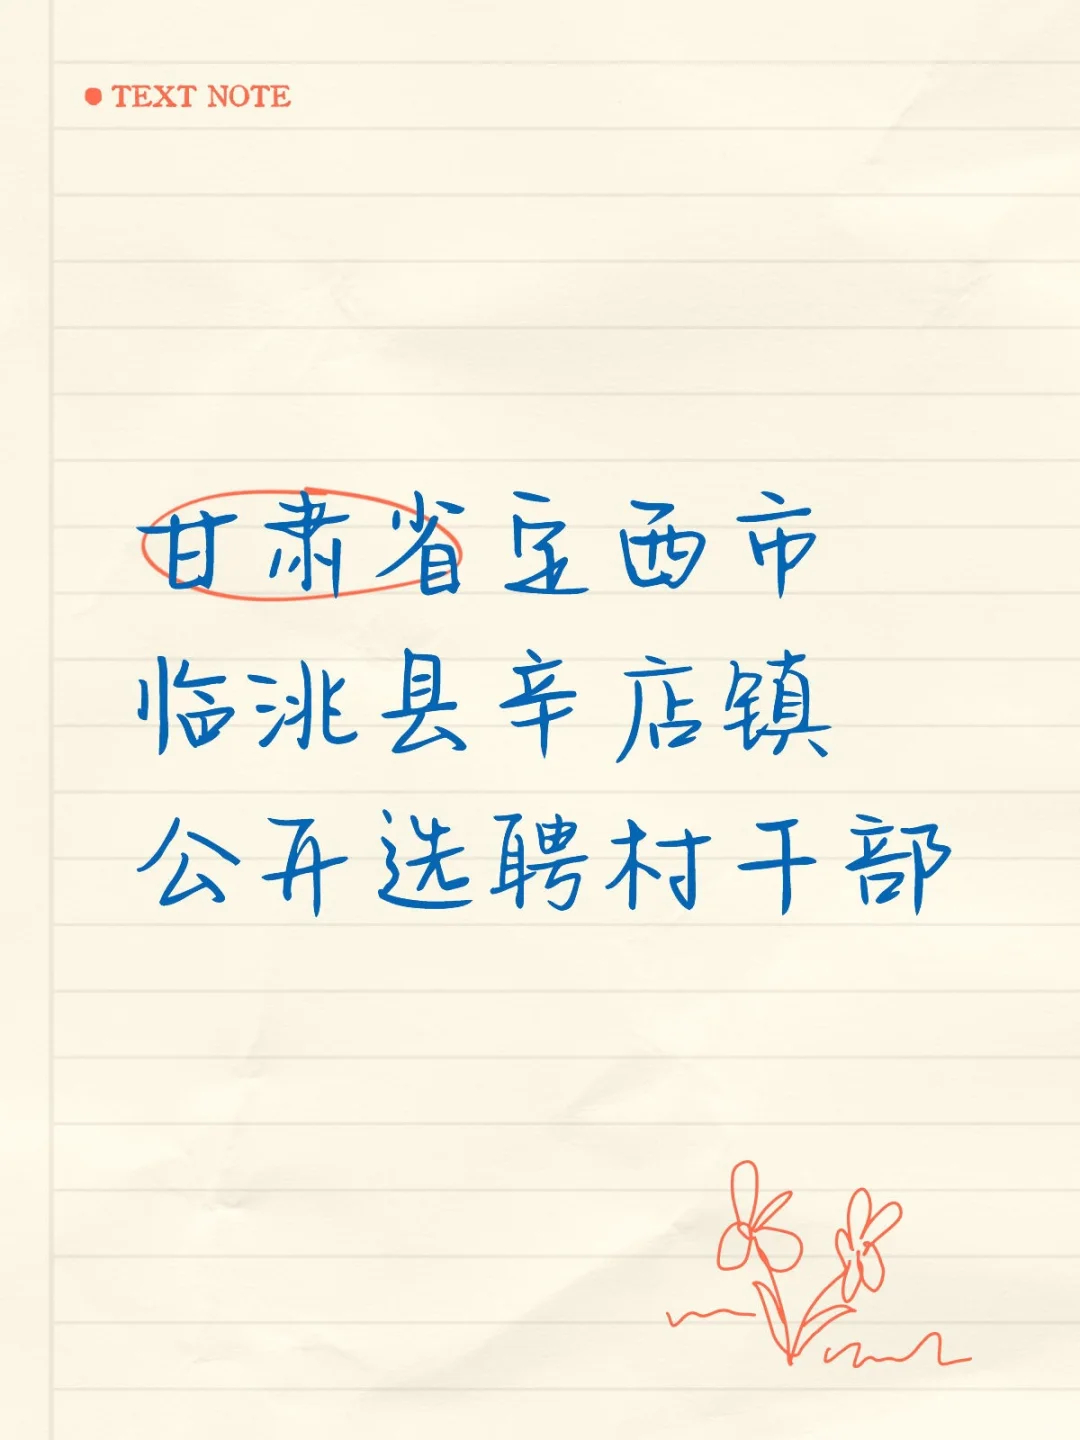 TEXT NOTE
甘肃省定西市
临洮县辛店镇
公开选聘村干部